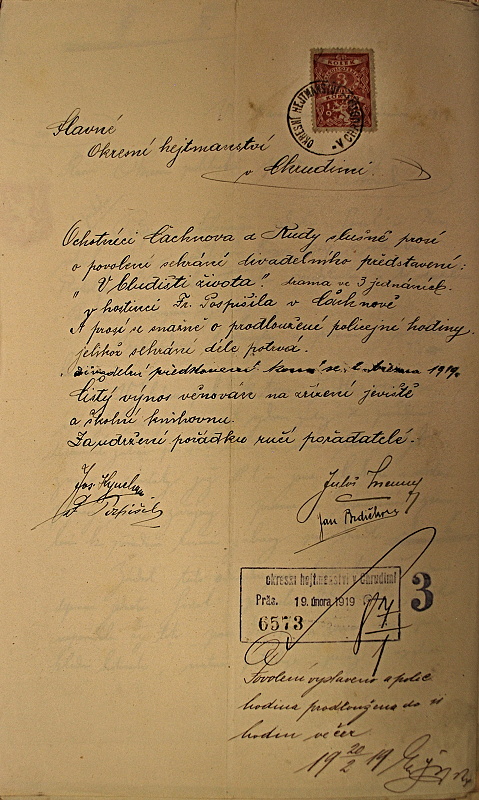 OKRESNÍ HEJTMANSTVÍ
Slavné
Okresní hejtmanství
v Chrudimi.
Ochotníci Čachnova a Rudy slušně prosí
o povolení sehrání divadelního představení:
" V bludišti života". drama ve 3 jednáních.
v hostinci Fr. Pospíšila v Čachnově
A prosí se snažně o prodloužení policejní hodiny
jelikož sehrání déle potrvá.
divadelní představení koná se 2. března 1919.
Čistý výnos věnován na zřízení jeviště
a školní knihovnu.
Za udržení pořádku ručí pořadatelé.
Jos.
Jan
okresní hejtmanství v Chrudimi
Präs. 19. února 1919
6573
3
Povolení vystaveno a polic.
hodina prodloužena do
hodin večer
19 20/2 19